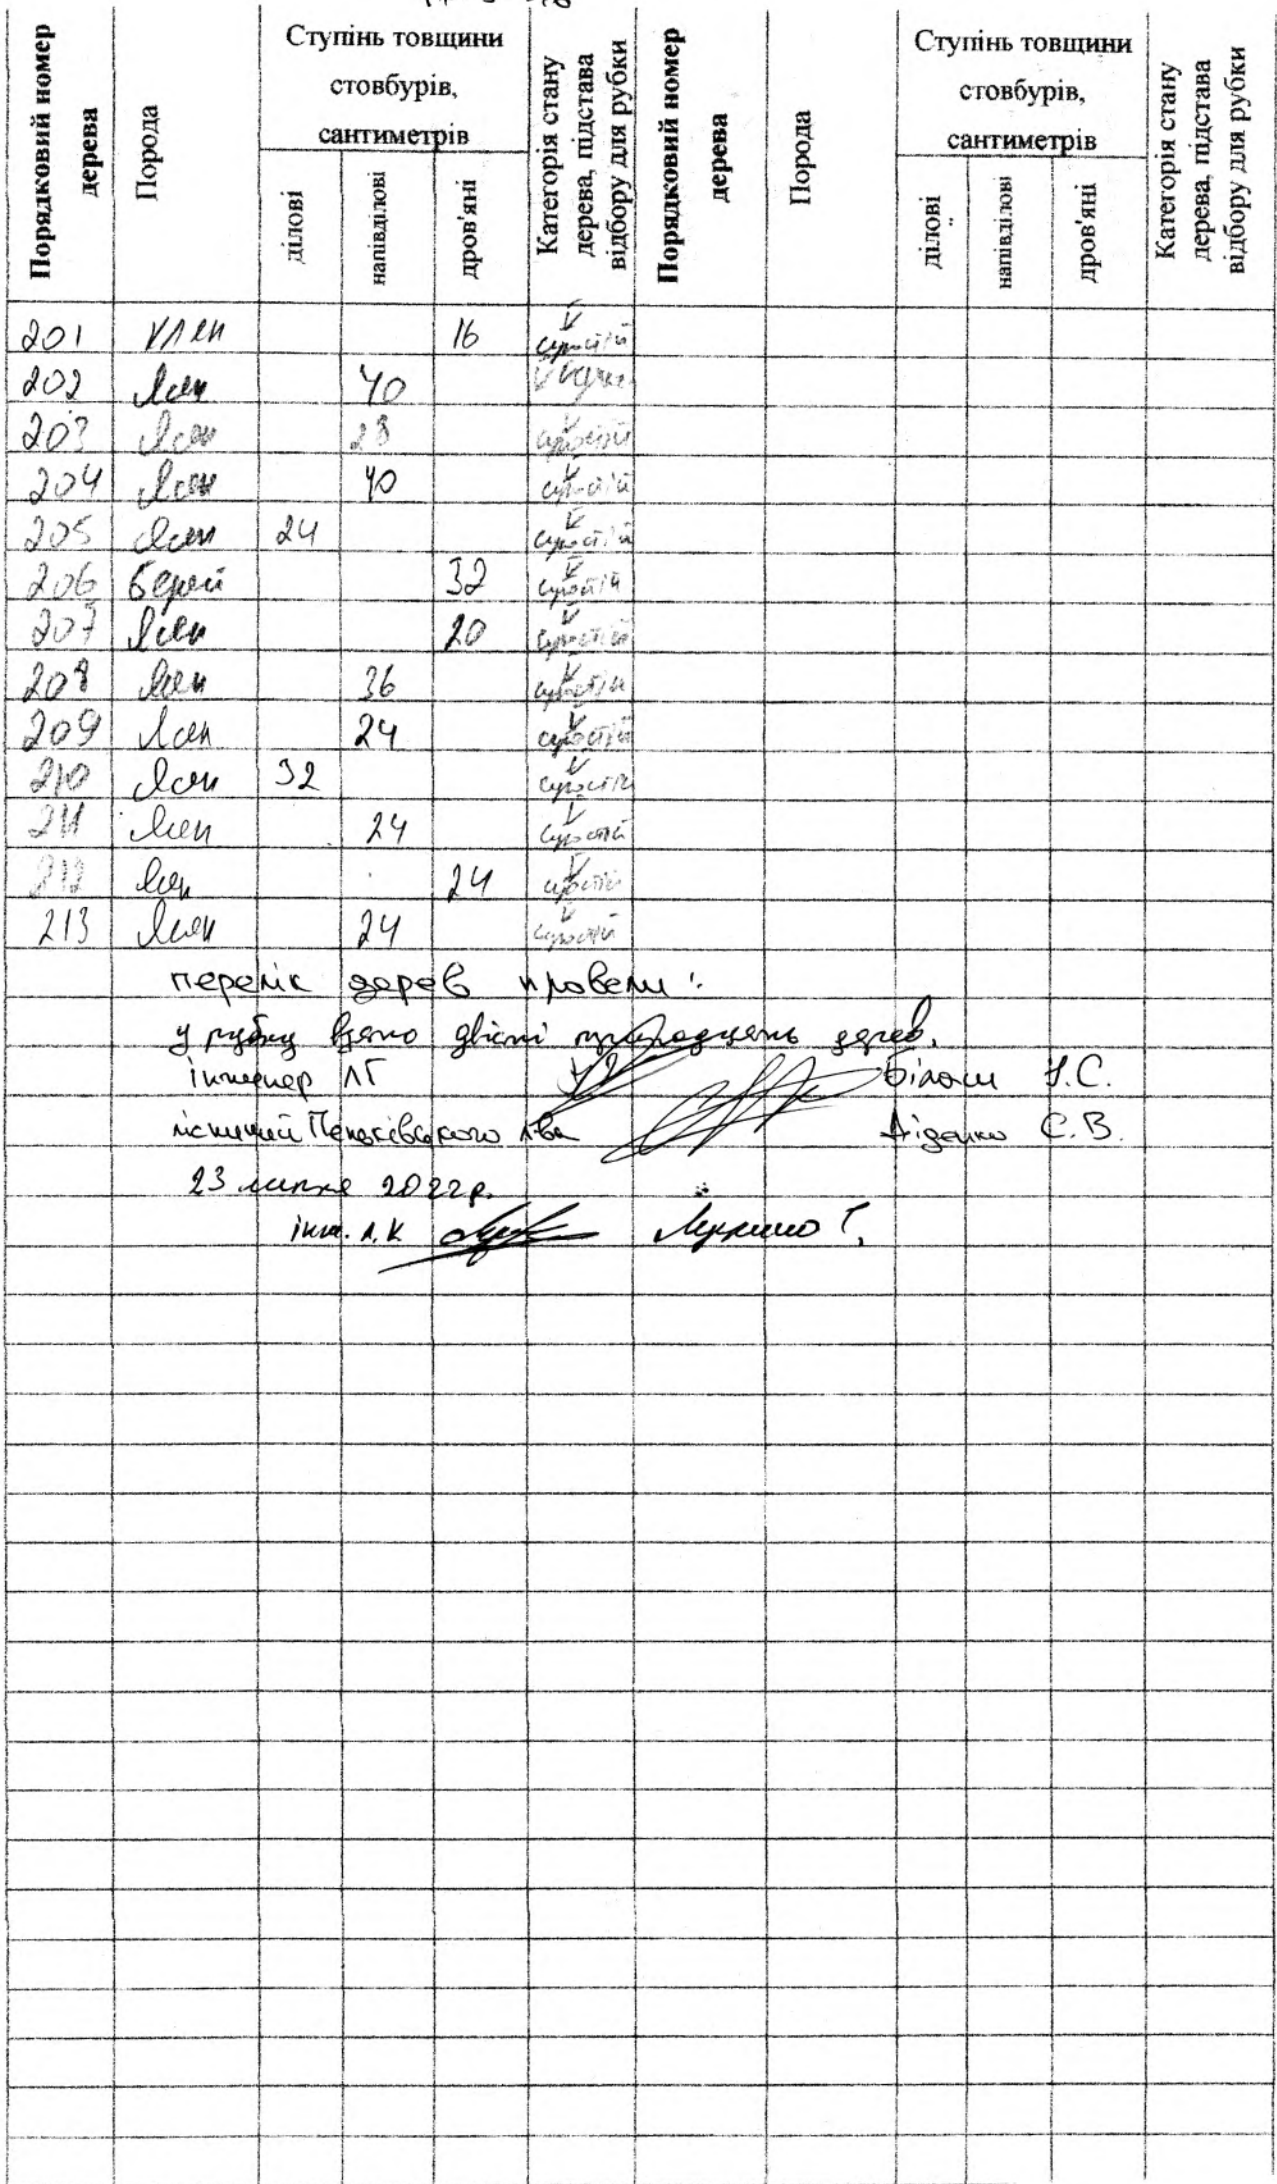 Порядковий номер дерева
Порода
Ступінь товщини стовбурів, сантиметрів
ділові
напівділові
дров'яні
Категорія стану дерева, підстава відбору для рубки
Порядковий номер дерева
Порода
Ступінь товщини стовбурів, сантиметрів
ділові
напівділові
дров'яні
Категорія стану дерева, підстава відбору для рубки
201 клен 16 V сухостій
202 Ясен 40 V
203 Ясен 28 V сухостій
204 Ясен 40 V сухостій
205 Ясен 24 V сухостій
206 Берест 32 V сухостій
207 Ясен 20 V сухостій
208 Ясен 36 V сухостій
209 Ясен 24 V сухостій
210 Ясен 32 V сухостій
211 Ясен 24 V сухостій
212 Ясен 24 V сухостій
213 Ясен 24 V сухостій
перелік дерев провели:
у рубку взято двісті тринадцять дерев.
інженер ЛГ Білаш
лісничий л-ва Діденко С.В.
23 липня 2022р.
інж. Л.К